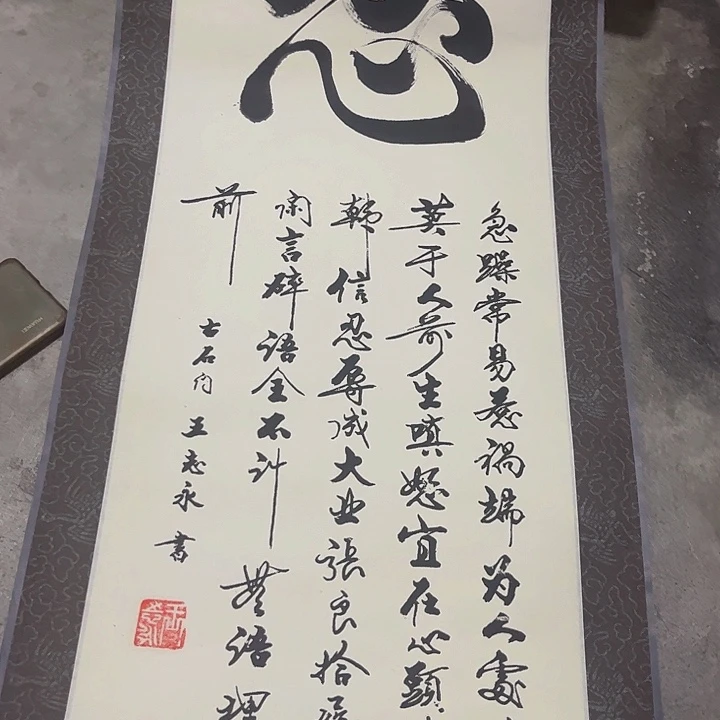 忍
急躁常易惹祸端为人处
莫于人前生嗔怒宜在心頭
韩信忍辱成大业張良拾履
闲言碎语全不计 费语理
前
古石刻 王志永 書